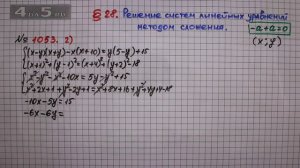 4на5.ру
§ 28. Решение систем линейных уравнений
методом сложения.
-a+a=0
(x; y)
№ 1053. 2)
{(x-y)(x+y)-x(x+10)=y(5-y)+15
(x+1)²+(y-1)²=(x+4)²+(y+2)²-18
{x²-y²-x²-10x=5y-y²+15
x²+2x+1+y²-2y+1=x²+8x+16+y²+4y+4-18
-10x-5y=15
-6x-6y=